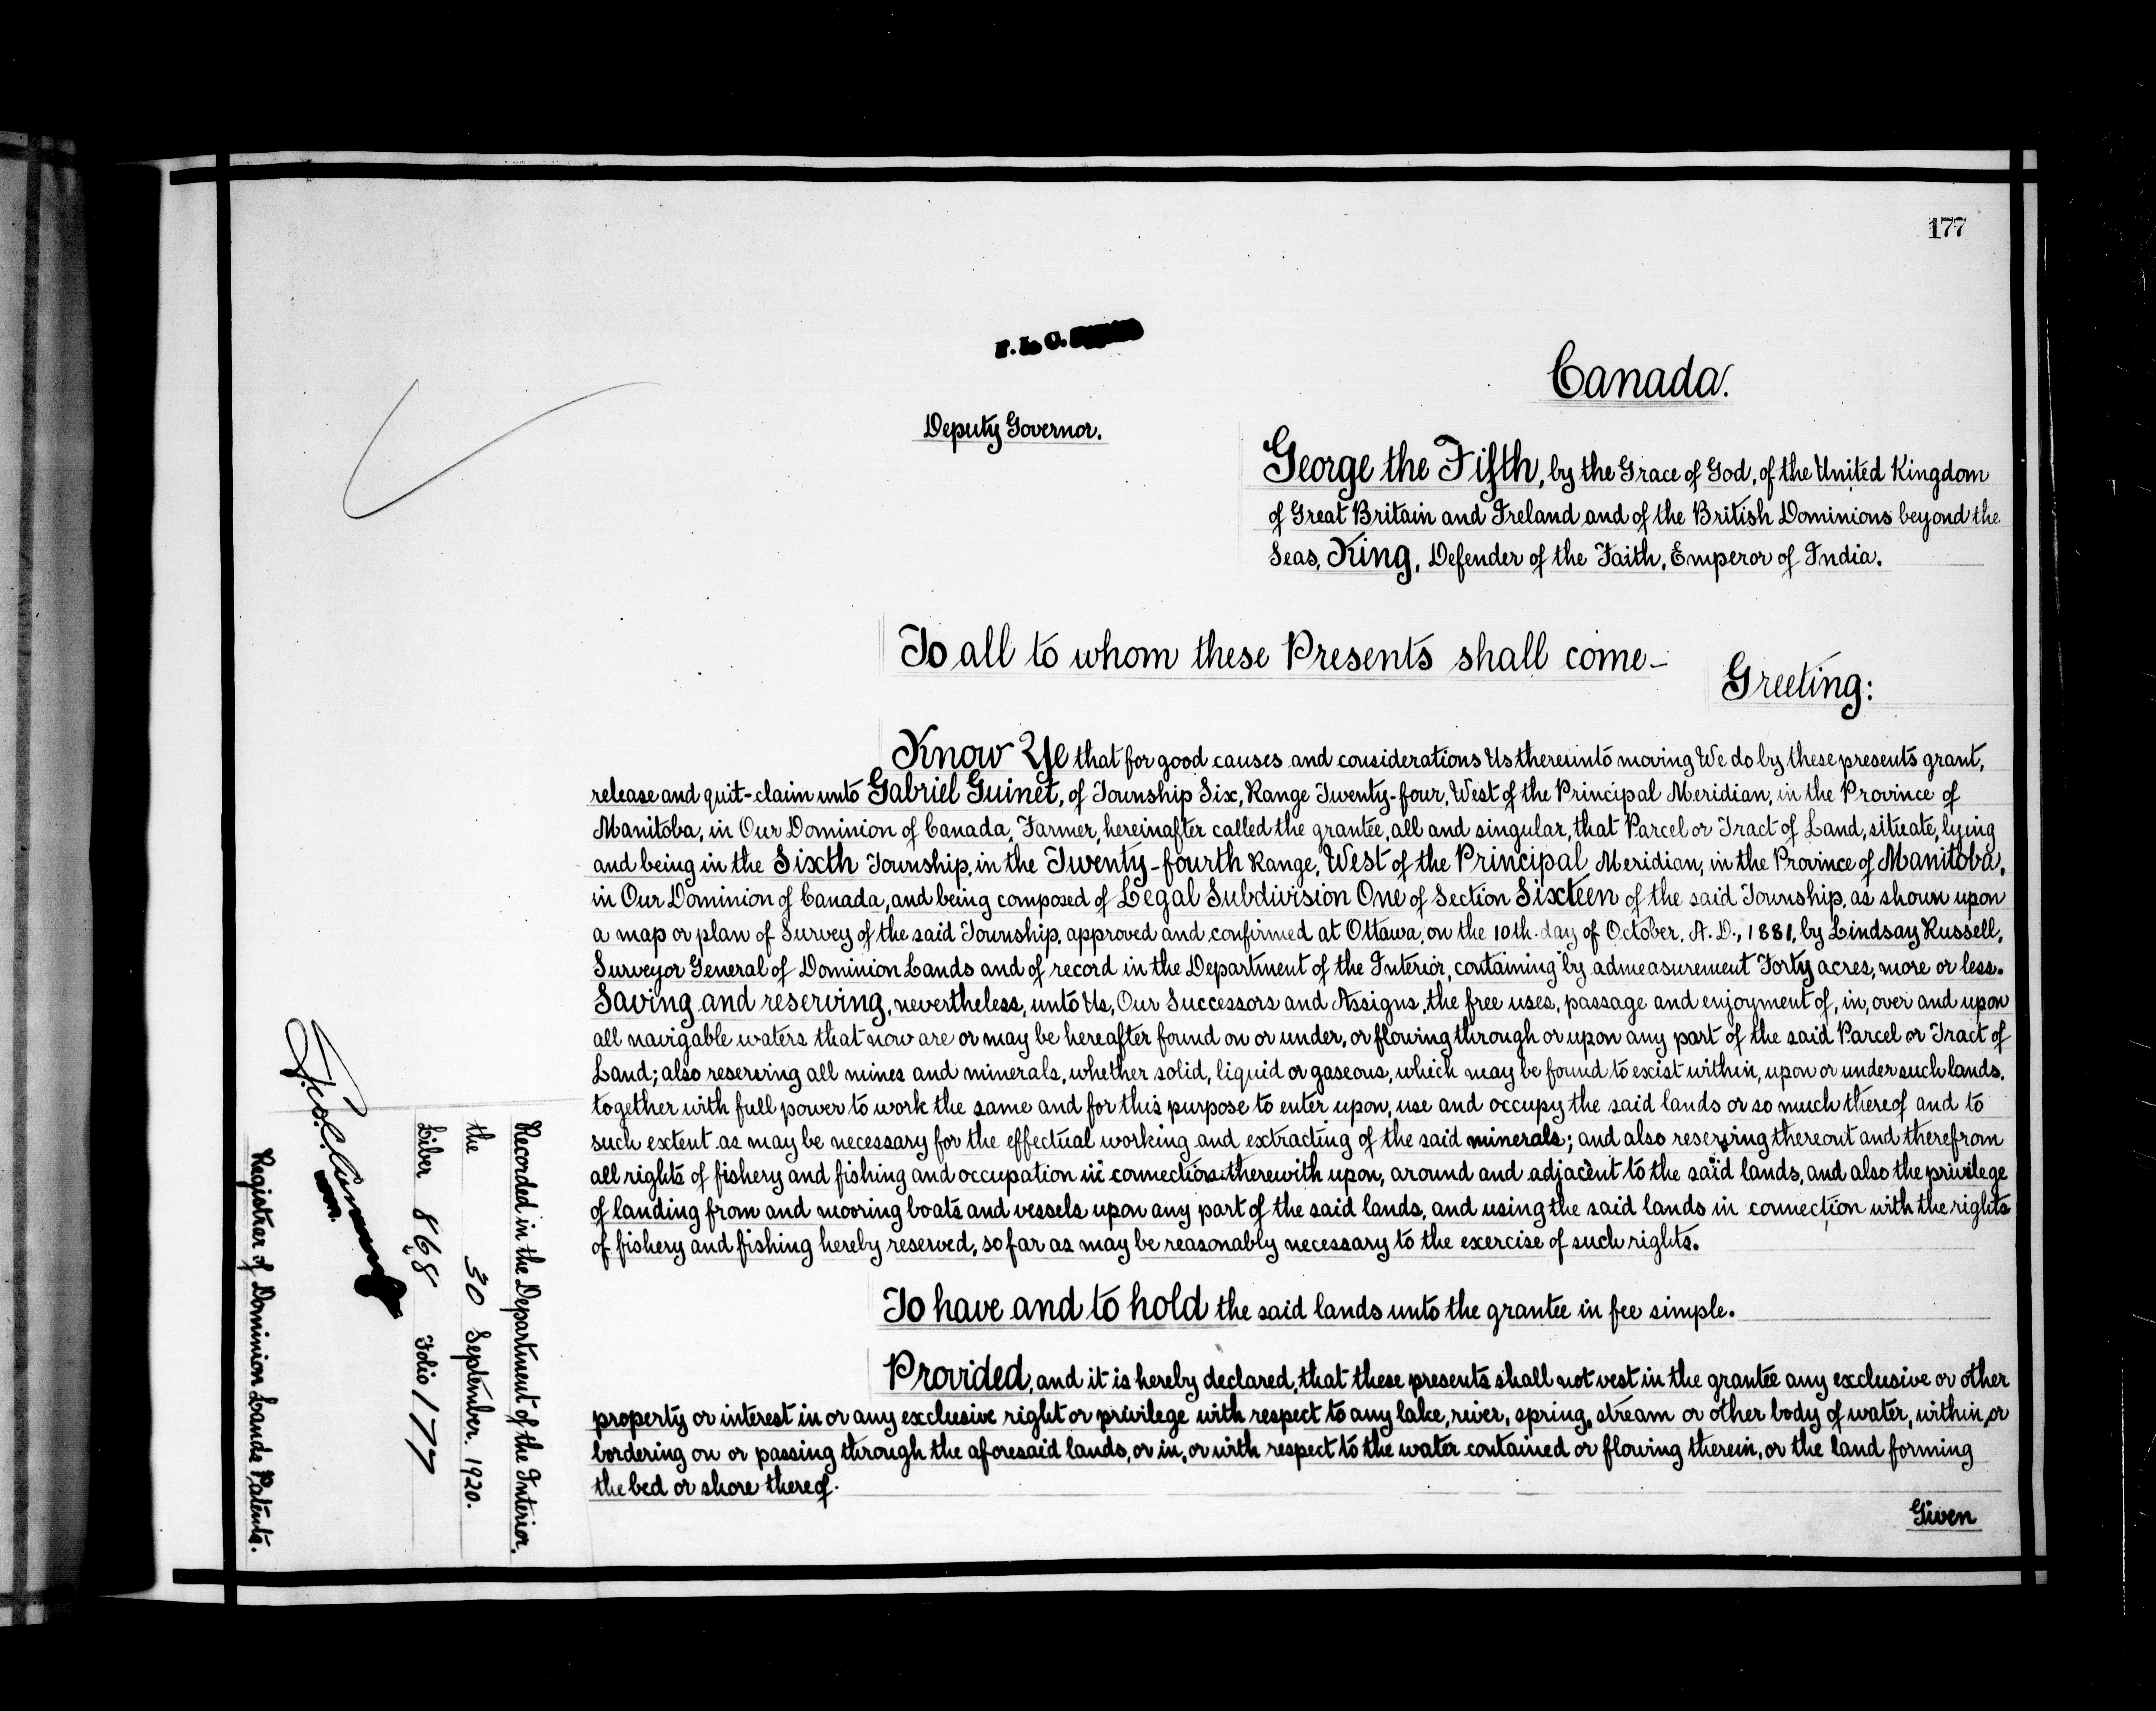 177
Canada.
Deputy Governor.
George the Fifth, by the Grace of God, of the United Kingdom
of Great Britain and Ireland and of the British Dominions beyond the
Seas, King, Defender of the Faith, Emperor of India.
To all to whom these Presents shall come-
Greeting:
Know Ye that for good causes and considerations Us thereunto moving We do by these presents grant,
release and quit-claim unto Gabriel Guinet, of Township Six, Range Twenty-four, West of the Principal Meridian, in the Province of
Manitoba, in Our Dominion of Canada, Farmer, hereinafter called the grantee, all and singular, that Parcel or Tract of Land, situate, lying
and being in the Sixth Township, in the Twenty-fourth Range, West of the Principal Meridian, in the Province of Manitoba,
in Our Dominion of Canada, and being composed of Legal Subdivision One of Section Sixteen of the said Township, as shown upon
a map or plan of Survey of the said Township, approved and confirmed at Ottawa, on the 10th. day of October, A. D., 1881, by Lindsay Russell,
Surveyor General of Dominion Lands and of record in the Department of the Interior, containing by admeasurement Forty acres, more or less.
Saving and reserving, nevertheless, unto Us, Our Successors and Assigns, the free uses, passage and enjoyment of, in, over and upon
all navigable waters that now are or may be hereafter found on or under, or flowing through or upon any part of the said Parcel or Tract of
Land; also reserving all mines and minerals, whether solid, liquid or gaseous, which may be found to exist within, upon or under such lands,
together with full power to work the same and for this purpose to enter upon, use and occupy the said lands or so much thereof and to
such extent as may be necessary for the effectual working and extracting of the said minerals; and also reserving thereout and therefrom
all rights of fishery and fishing and occupation in connection therewith upon, around and adjacent to the said lands, and also the privilege
of landing from and mooring boats and vessels upon any part of the said lands, and using the said lands in connection with the rights
of fishery and fishing hereby reserved, so far as may be reasonably necessary to the exercise of such rights.
To have and to hold the said lands unto the grantee in fee simple.
Provided, and it is hereby declared, that these presents shall not vest in the grantee any exclusive or other
property or interest in or any exclusive right or privilege with respect to any lake, river, spring, stream or other body of water, within, or
bordering on or passing through the aforesaid lands, or in, or with respect to the water contained or flowing therein, or the land forming
the bed or shore thereof.
Given
Recorded in the Department of the Interior,
the 30 September. 1920.
Liber 868 Folio 177
Registrar of Dominion Lands Patents.